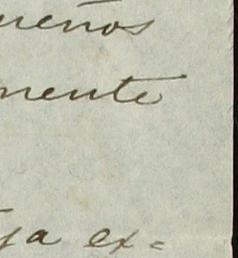 ueños
mente
ja ex=